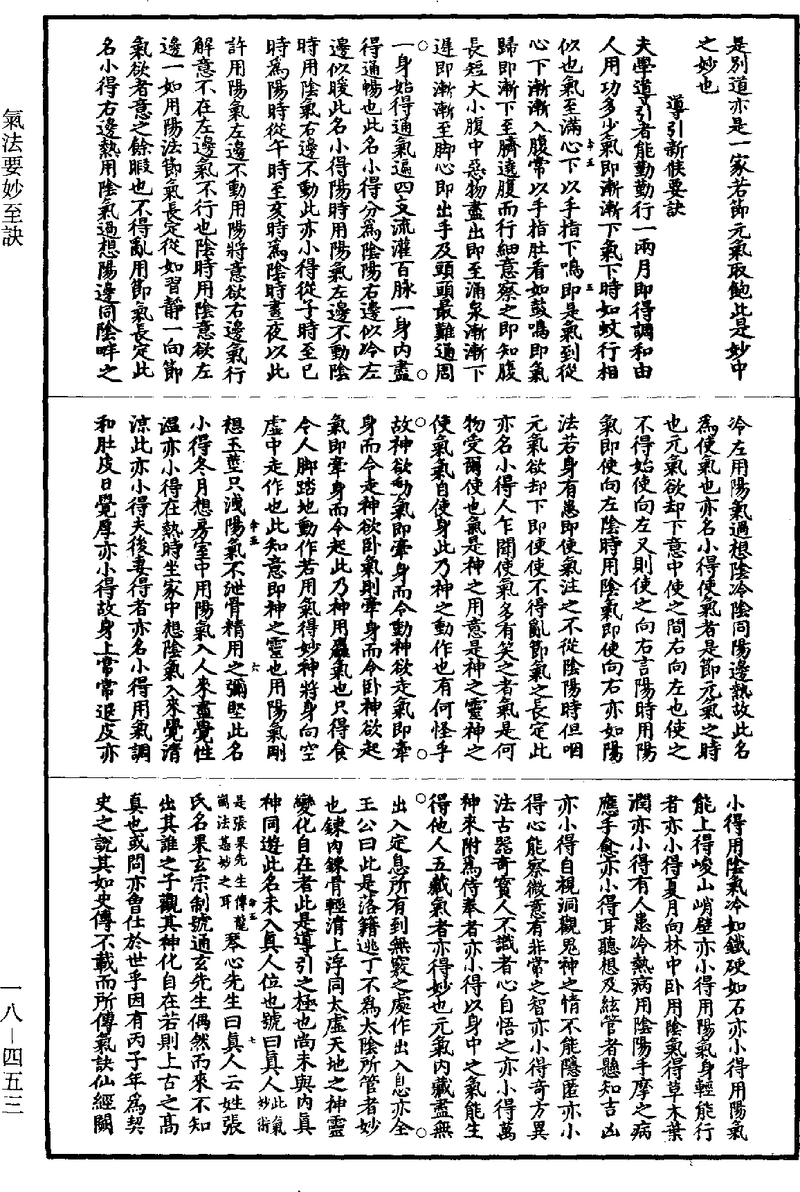 是別道亦是一家若節元氣取飽此是妙中
之妙也
導引新候要訣
夫學導引者能勤勤行一兩月即得調和由
人用功多少氣即漸漸下氣下時如蚊行相
似也氣至滿心下以手指下鳴即是氣到從
心下漸漸入腹常以手指肚看如鼓鳴即氣
歸即漸下至臍遶腹而行細意察之即知腹
長短大小腹中惡物盡出即至涌泉漸漸下
遲即漸漸至脚心即出手及頭頭最難通周
一身始得通氣遍四支流灌百脉一身內盡
得通暢也此名小得分爲陰陽右邊似冷左
邊似暖此名小得陽時用陽氣左邊不動陰
時用陰氣右邊不動此亦小得從子時至巳
時爲陽時從午時至亥時爲陰時晝夜以此
許用陽氣左邊不動用陽將意欲右邊氣行
解意不在左邊氣不行也陰時用陰意欲左
邊一如用陽法節氣長定從如習靜一向節
氣欲者意之餘暇也不得亂用節氣長定此
名小得右邊熱用陰氣過想陽邊同陰哶之
冷左用陽氣過想陰冷陰同陽邊熱故此名
爲使氣也亦名小得使氣者是節元氣之時
也元氣欲却下意中使之間右向左也使之
不得始使向左又則使之向右言陽時用陽
氣即使向左陰時用陰氣即使向右亦如陽
法若身有患即使氣注之不從陰陽時但咽
元氣欲却下即使使不得亂節氣之長定此
亦名小得人乍聞使氣多有笑之者氣是何
物受爾使也氣是神之用意是神之靈神之
使氣氣自使身此乃神之動作也有何怪乎
故神欲動氣即牽身而令動神欲走氣即牽
身而令走神欲卧氣則牽身而令卧神欲起
氣即牽身而令起此乃神用麤氣也只得食
令人脚踏地動作若用氣得妙神將身向空
虛中走作也此知意即神之靈也用陽氣剛
想玉莖只洩陽氣不紲骨精用之彌堅此名
小得冬月想房室中用陽氣入人來盡覺性
溫亦小得在熱時坐家中想陰氣入來覺清
涼此亦小得夫後妻得者亦名小得用氣調
和肚皮日覺厚亦小得故身上常常退皮亦
小得用陰氣冷如鐵硬如石亦小得用陽氣
能上得峻山峭壁亦小得用陽氣身輕能行
者亦小得夏月向林中卧用陰氣得草木葉
潤亦小得有人患冷熱病用陰陽手摩之病
應手愈亦小得耳聽想及絃管者懸知吉凶
亦小得自視洞觀鬼神之情不能隱匿亦小
得心能察微意有非常之智亦小得奇方異
法古器奇寶人不識者心自悟之亦小得萬
神來附爲侍奉者亦小得以身中之氣能生
得他人五藏氣者亦得妙也元氣內藏盡無
出入定息所有到無竅之處作出入息亦全
王公曰此是落籍逃丁不爲太陰所管者妙
也鍊肉鍊骨輕清上浮同太虛天地之神靈
變化自在者此是導引之極也尚未與內真
神同遊此名未入真人位也號曰真人此氣妙術
是張果先生傳龍蜀法甚妙之耳 琴心先生曰真人云姓張
氏名果玄宗制號通玄先生偶然而來不知
出其誰之子觀其神化自在若則上古之高
真也或問亦會仕於世乎因有丙子年爲契
史之說其如史傳不載而所傳氣訣仙經闕
氣法要妙至訣
一八—四五三